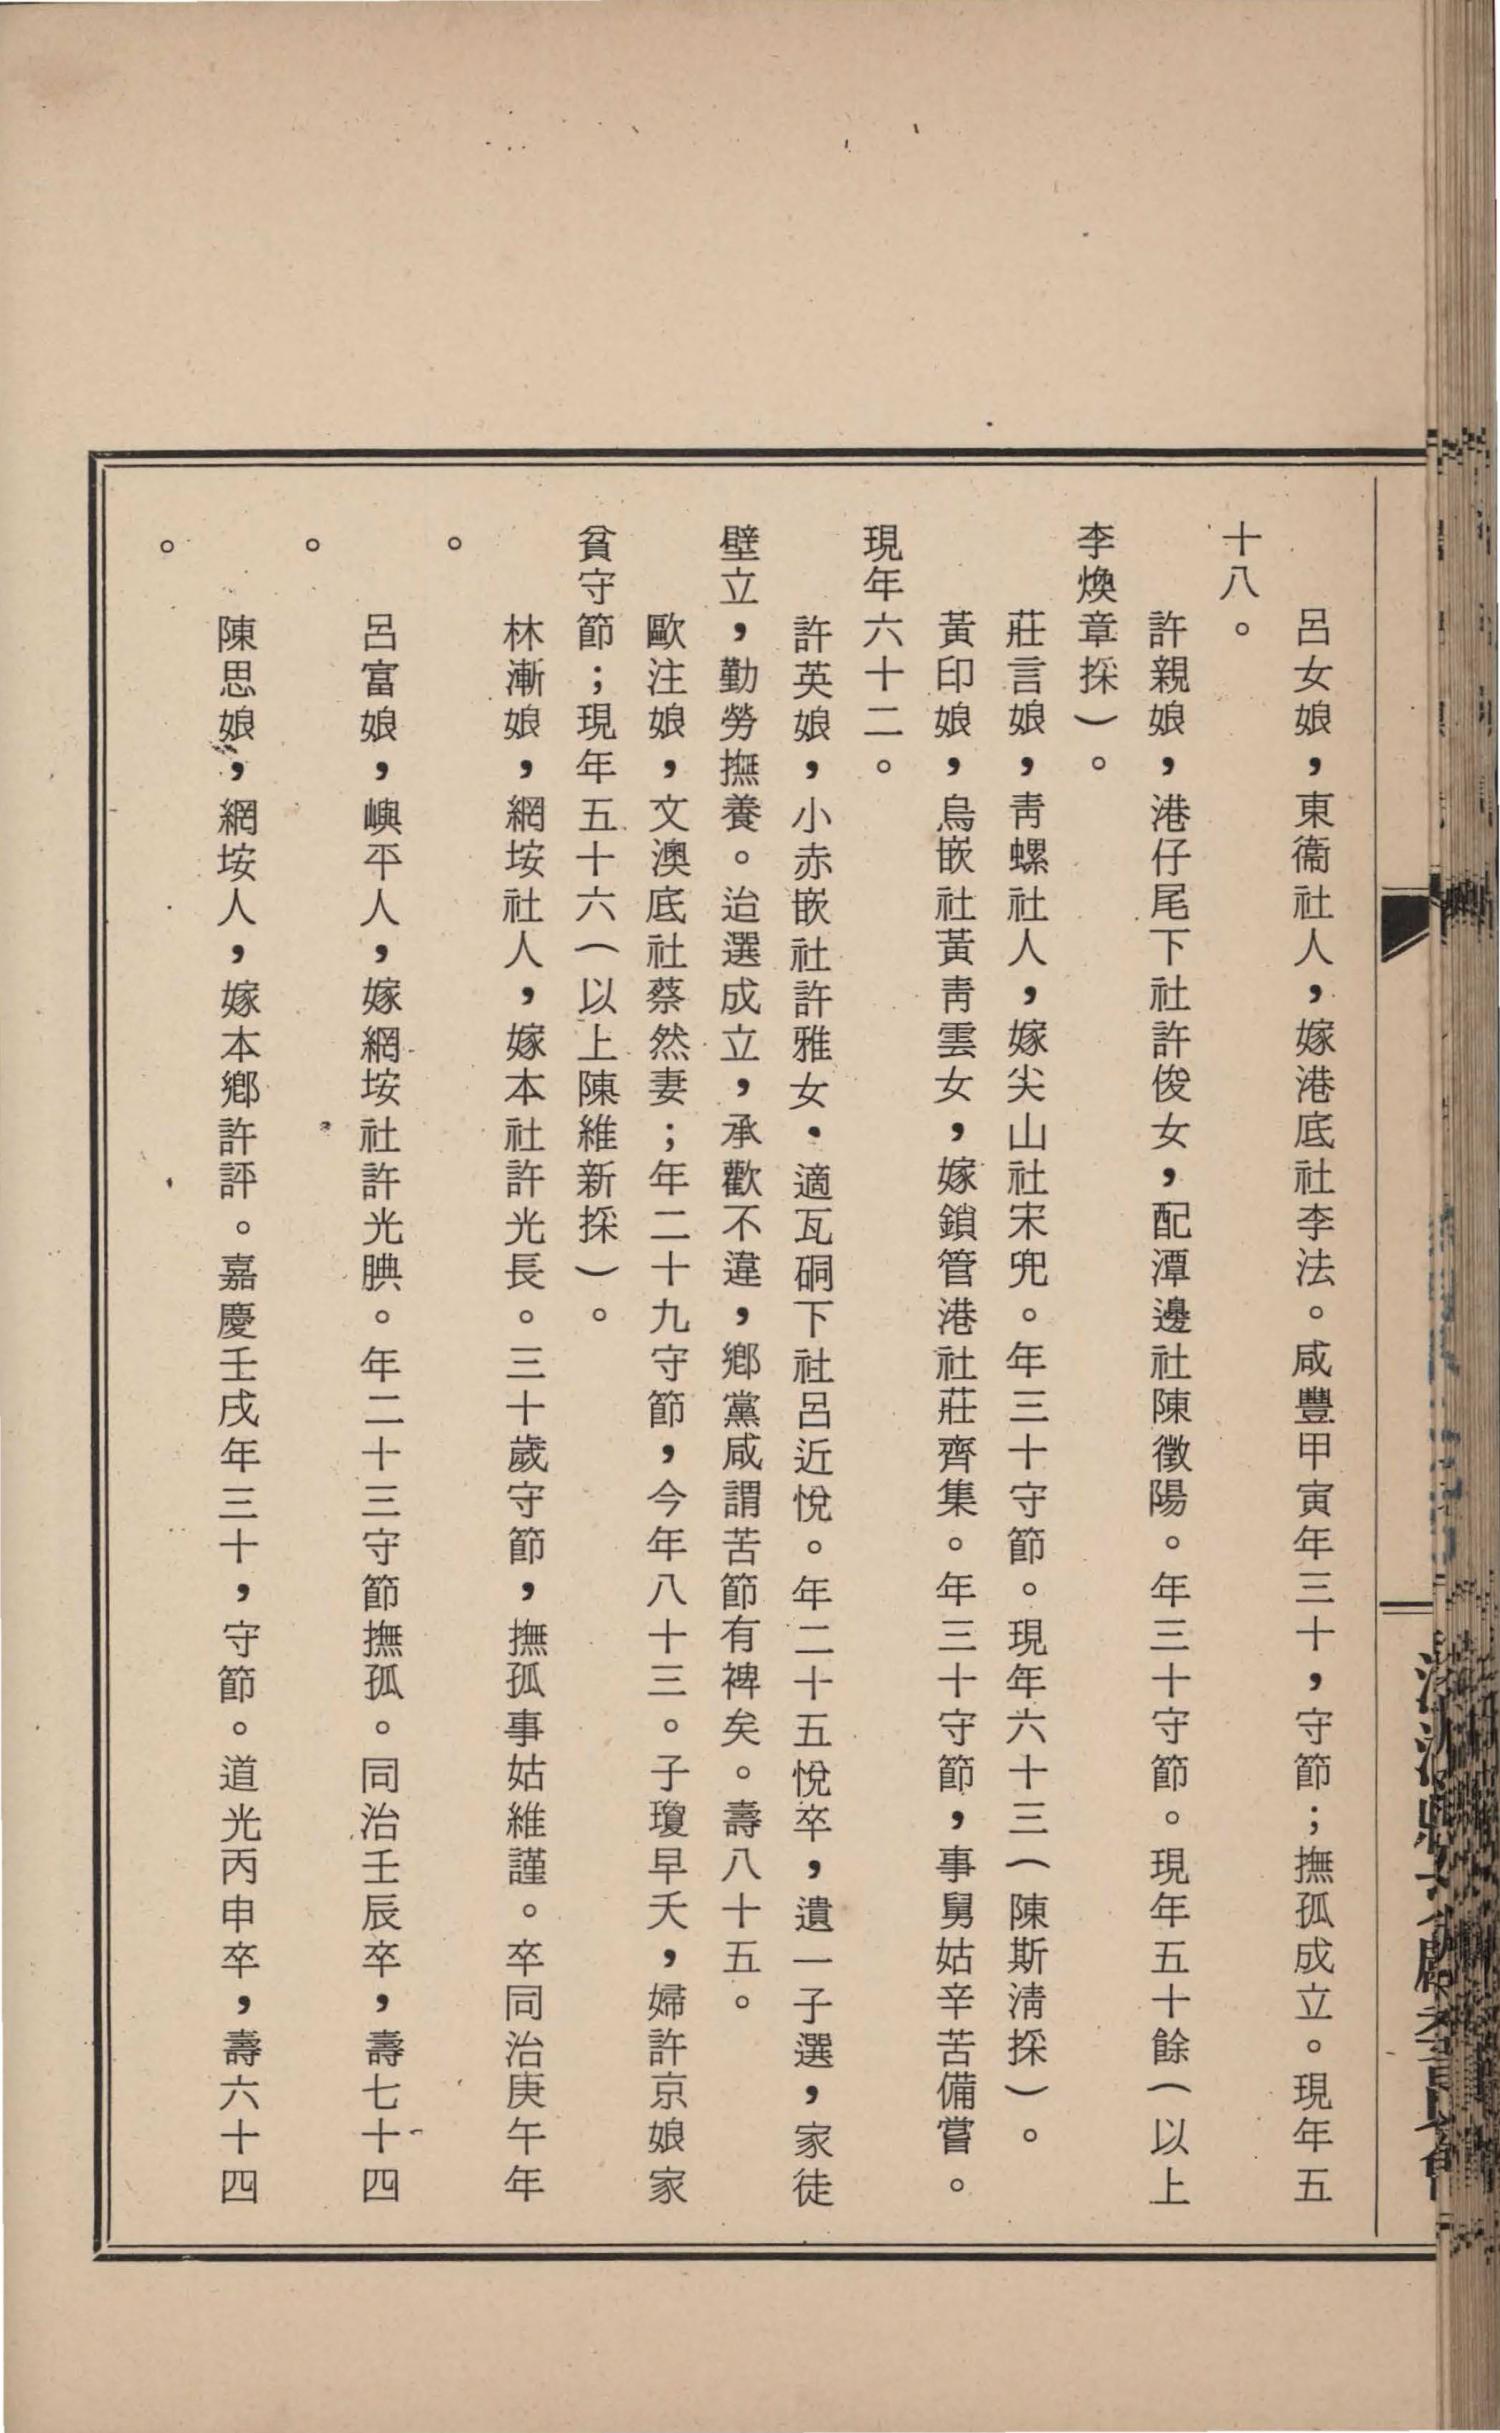 呂女娘，東衞社人，嫁港底社李法。咸豐甲寅年三十，守節；撫孤成立。現年五
十八。
許親娘，港仔尾下社許俊女，配潭邊社陳徵陽。年三十守節。現年五十餘（以上
李煥章採）。
莊言娘，靑螺社人，嫁尖山社宋兜。年三十守節。現年六十三（陳斯淸採）。
黃印娘，烏嵌社黃靑雲女，嫁鎖管港社莊齊集。年三十守節，事舅姑辛苦備嘗。
現年六十二。
許英娘，小赤嵌社許雅女・適瓦硐下社呂近悅。年二十五悅卒，遺一子選，家徒
壁立，勤勞撫養。迨選成立，承歡不違，鄉黨咸謂苦節有裨矣。壽八十五。
歐注娘，文澳底社蔡然妻；年二十九守節，今年八十三。子瓊早夭，婦許京娘家
貧守節；現年五十六（以上陳維新採）。
林漸娘，網垵社人，嫁本社許光長。三十歲守節，撫孤事姑維謹。卒同治庚午年
。
呂富娘，嶼平人，嫁網垵社許光腆。年二十三守節撫孤。同治壬辰卒，壽七十四
。
陳思娘，網垵人，嫁本鄉許評。嘉慶壬戌年三十，守節。道光丙申卒，壽六十四
。